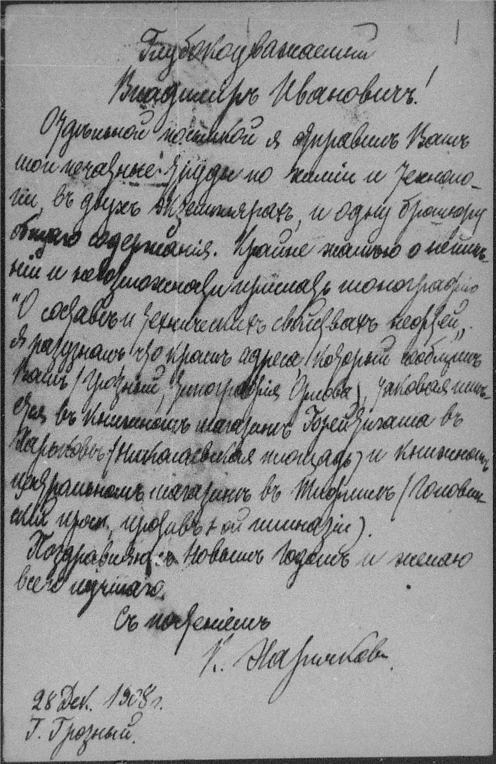 Глубокоуважаемый
Владимиръ Ивановичъ!
Отдѣльной посылкой я отправилъ Вамъ
мои печатные труды по химіи и техноло-
гіи, въ двухъ экземплярахъ, и одну брошюру
общаго содержанія. Крайне жалѣю о неимѣ-
ніи и невозможности прислать монографію
"О составѣ и техническихъ свойствахъ нефтей".
Я разузналъ что кромѣ адреса (который сообщилъ
Вамъ (Грозный, типографія Орлова), таковая имѣ-
ется въ книжномъ магазинѣ в
Харьковѣ (Николаевская площадь) и книжномъ
центральномъ магазинѣ въ Тифлисѣ (Головин-
скій просп, противъ 1-ой гимназіи).
Поздравляю съ Новымъ Годомъ и желаю
всего лучшаго.
Съ почтеніемъ
К. Харичковъ.
28 Дек. 1908 г.
Г. Грозный.